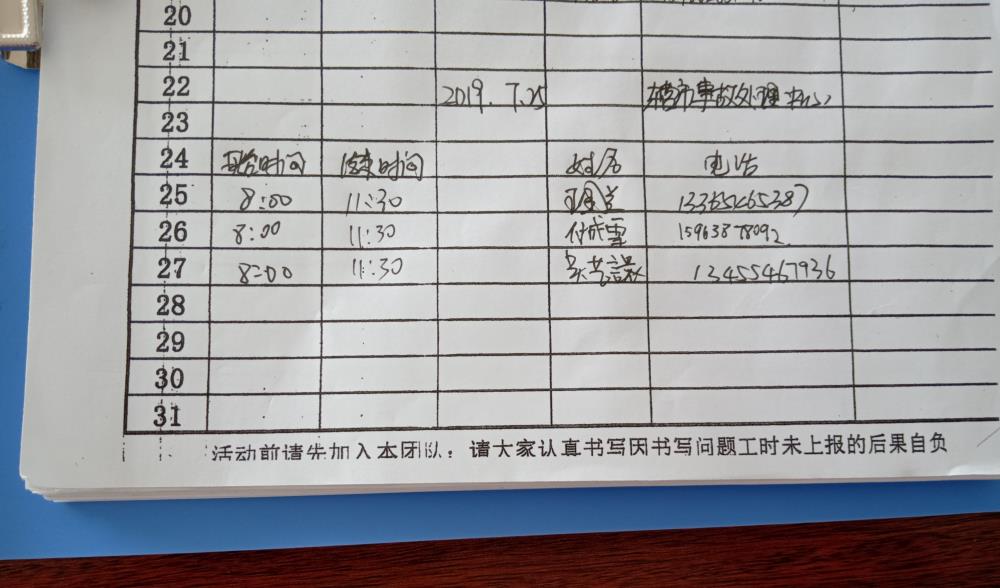 20
21
22 2019. 7.25 事故处理中心
23
24 开始时间 结束时间 姓名 电话
25 8:00 11:30
26 8:00 11:30 付成雪 15963878092
27 8:00 11:30 13455467936
28
29
30
31
活动前请先加入本团队：请大家认真书写因书写问题工时未上报的后果自负